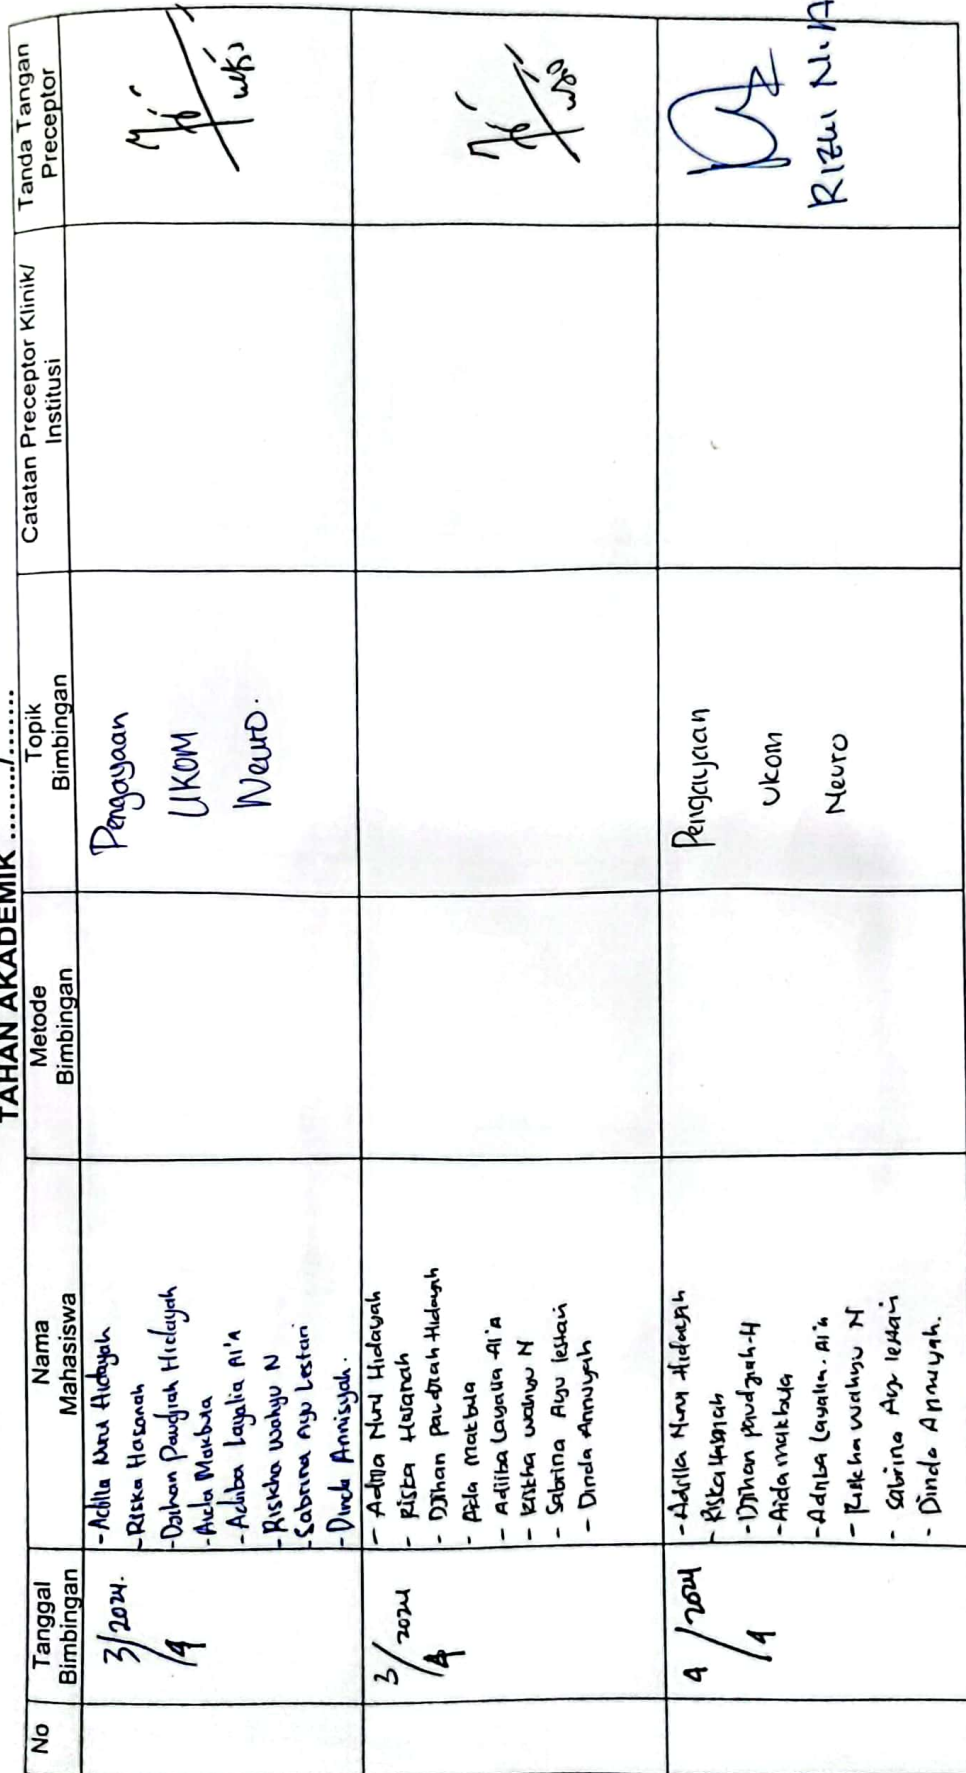 TAHAN AKADEMIK ........./.......
No
Tanggal Bimbingan
Nama Mahasiswa
Metode Bimbingan
Topik Bimbingan
Catatan Preceptor Klinik/ Institusi
Tanda Tangan Preceptor
3/4 2024.
- Adilla Nuru Hidayah
- Riska Hasanah
- Djihan Paudjiah Hidayah
- Aida Makbula
- Adiba Layalia Al'A
- Riskha Wahyu N
- Sabrina Ayu Lestari
- Dinda Annisyah.
Pengayaan
UKOM
Neuro.
3/4 2024
- Adilla Nuru Hidayah
- Riska Hasanah
- Djihan paudziah Hidayah
- Aida makbula
- Adiba Layalia Al'A
- Riskha wahyu N
- Sabrina Ayu lestari
- Dinda Annisyah
4/4 2024
- Adilla Nuru Hidayah
- Riska Hasanah
- Djihan paudziah-H
- Aida makbula
- Adiba Layalia. Al'A
- Riskha wahyu N
- Sabrina Ayu lestari
- Dinda Annisyah.
Pengayaan
Ukom
Neuro
RIZKI N.A